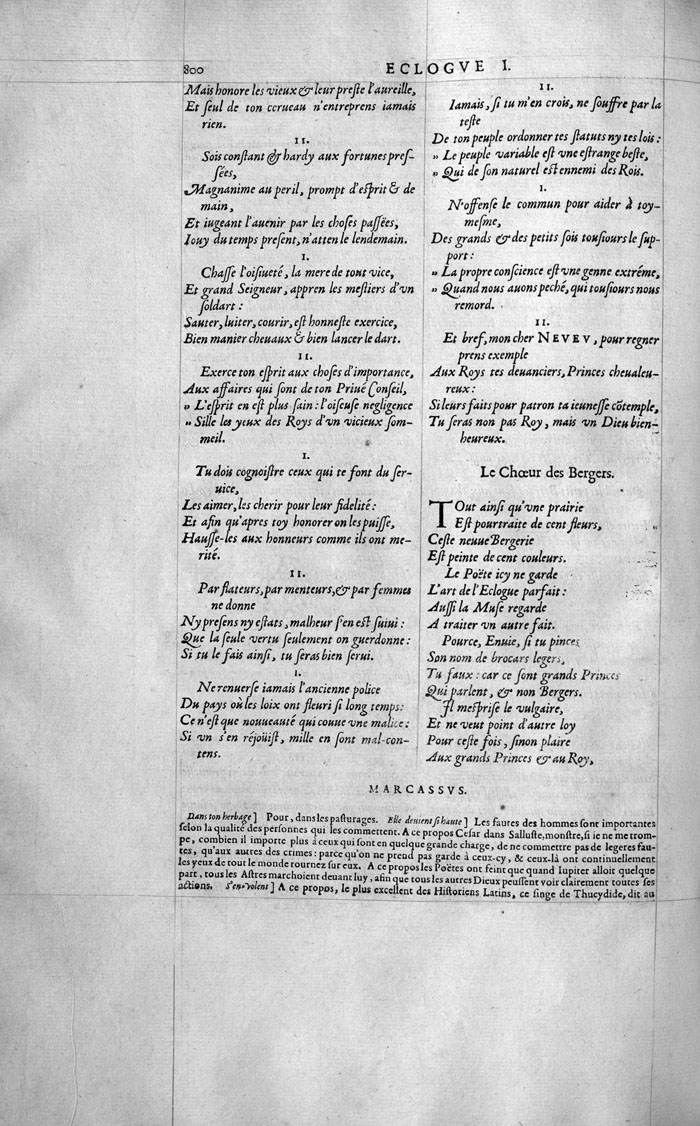 800
ECLOGVE I.
Mais honore les vieux & leur preſte l'aureille,
Et ſeul de ton cerueau n'entreprens iamais
rien.
II.
Sois conſtant & hardy aux fortunes preſ-
ſées,
Magnanime au peril, prompt d'eſprit & de
main,
Et iugeant l'auenir par les choſes paſſées,
Iouy du temps preſent, n'atten le lendemain.
I.
Chaſſe l'oiſiueté, la mere de tout vice,
Et grand Seigneur, appren les meſtiers d'vn
ſoldart:
Sauter, luiter, courir, eſt honneſte exercice,
Bien manier cheuaux & bien lancer le dart.
II.
Exerce ton eſprit aux choſes d'importance,
Aux affaires qui ſont de ton Priué Conſeil,
» L'eſprit en eſt plus ſain: l'oiſeuſe negligence
» Sille les yeux des Roys d'vn vicieux ſom-
meil.
I.
Tu dois cognoiſtre ceux qui te font du ſer-
uice,
Les aimer, les cherir pour leur fidelité:
Et afin qu'apres toy honorer on les puiſſe,
Hauſſe-les aux honneurs comme ils ont me-
rité.
II.
Par flateurs, par menteurs, & par femmes
ne donne
Ny preſens ny eſtats, malheur s'en eſt ſuiui:
Que la ſeule vertu ſeulement on guerdonne:
Si tu le fais ainſi, tu ſeras bien ſerui.
I.
Ne renuerſe iamais l'ancienne police
Du païs où les loix ont fleuri ſi long temps:
Ce n'eſt que nouueauté qui couue vne malice:
Si vn s'en réjoüiſt, mille en ſont mal-con-
tens.
II.
Iamais, ſi tu m'en crois, ne ſouffre par la
teſte
De ton peuple ordonner tes ſtatuts ny tes lois:
» Le peuple variable eſt vne eſtrange beſte,
» Qui de ſon naturel eſt ennemi des Rois.
I.
N'offenſe le commun pour aider à toy-
meſme,
Des grands & des petits ſois touſiours le ſup-
port:
» La propre conſcience eſt vne genne extréme,
» Quand nous auons peché, qui touſiours nous
remord.
II.
Et bref, mon cher NEVEV, pour regner
prens exemple
Aux Roys tes deuanciers, Princes cheualeu-
reux:
Si leurs faits pour patron ta ieuneſſe cõtemple,
Tu ſeras non pas Roy, mais vn Dieu bien-
heureux.
Le Chœur des Bergers.
TOut ainſi qu'vne prairie
Eſt pourtraite de cent fleurs,
Ceſte neuue Bergerie
Eſt peinte de cent couleurs.
Le Poëte icy ne garde
L'art de l'Eclogue parfait:
Auſſi la Muſe regarde
A traiter vn autre fait.
Pource, Enuie, ſi tu pinces
Son nom de brocars legers,
Tu faux: car ce ſont grands Princes
Qui parlent, & non Bergers.
Il meſpriſe le vulgaire,
Et ne veut point d'autre loy
Pour ceſte fois, ſinon plaire
Aux grands Princes & au Roy,
MARCASSVS.
Dans ton herbage] Pour, dans les paſturages. Elle deuient ſi haute] Les fautes des hommes ſont importantes
ſelon la qualité des perſonnes qui les commettent. A ce propos Ceſar dans Salluſte, monſtre, ſi ie ne me trom-
pe, combien il importe plus à ceux qui ſont en quelque grande charge, de ne commettre pas de legeres fau-
tes, qu'aux autres des crimes: parce qu'on ne prend pas garde à ceux-cy, & ceux-là ont continuellement
les yeux de tout le monde tournez ſur eux. A ce propos les Poëtes ont feint que quand Iupiter alloit quelque
part, tous les Aſtres marchoient deuant luy, afin que tous les autres Dieux peuſſent voir clairement toutes ſes
actions. S'en-volent] A ce propos, le plus excellent des Hiſtoriens Latins, ce ſinge de Thucydide, dit au